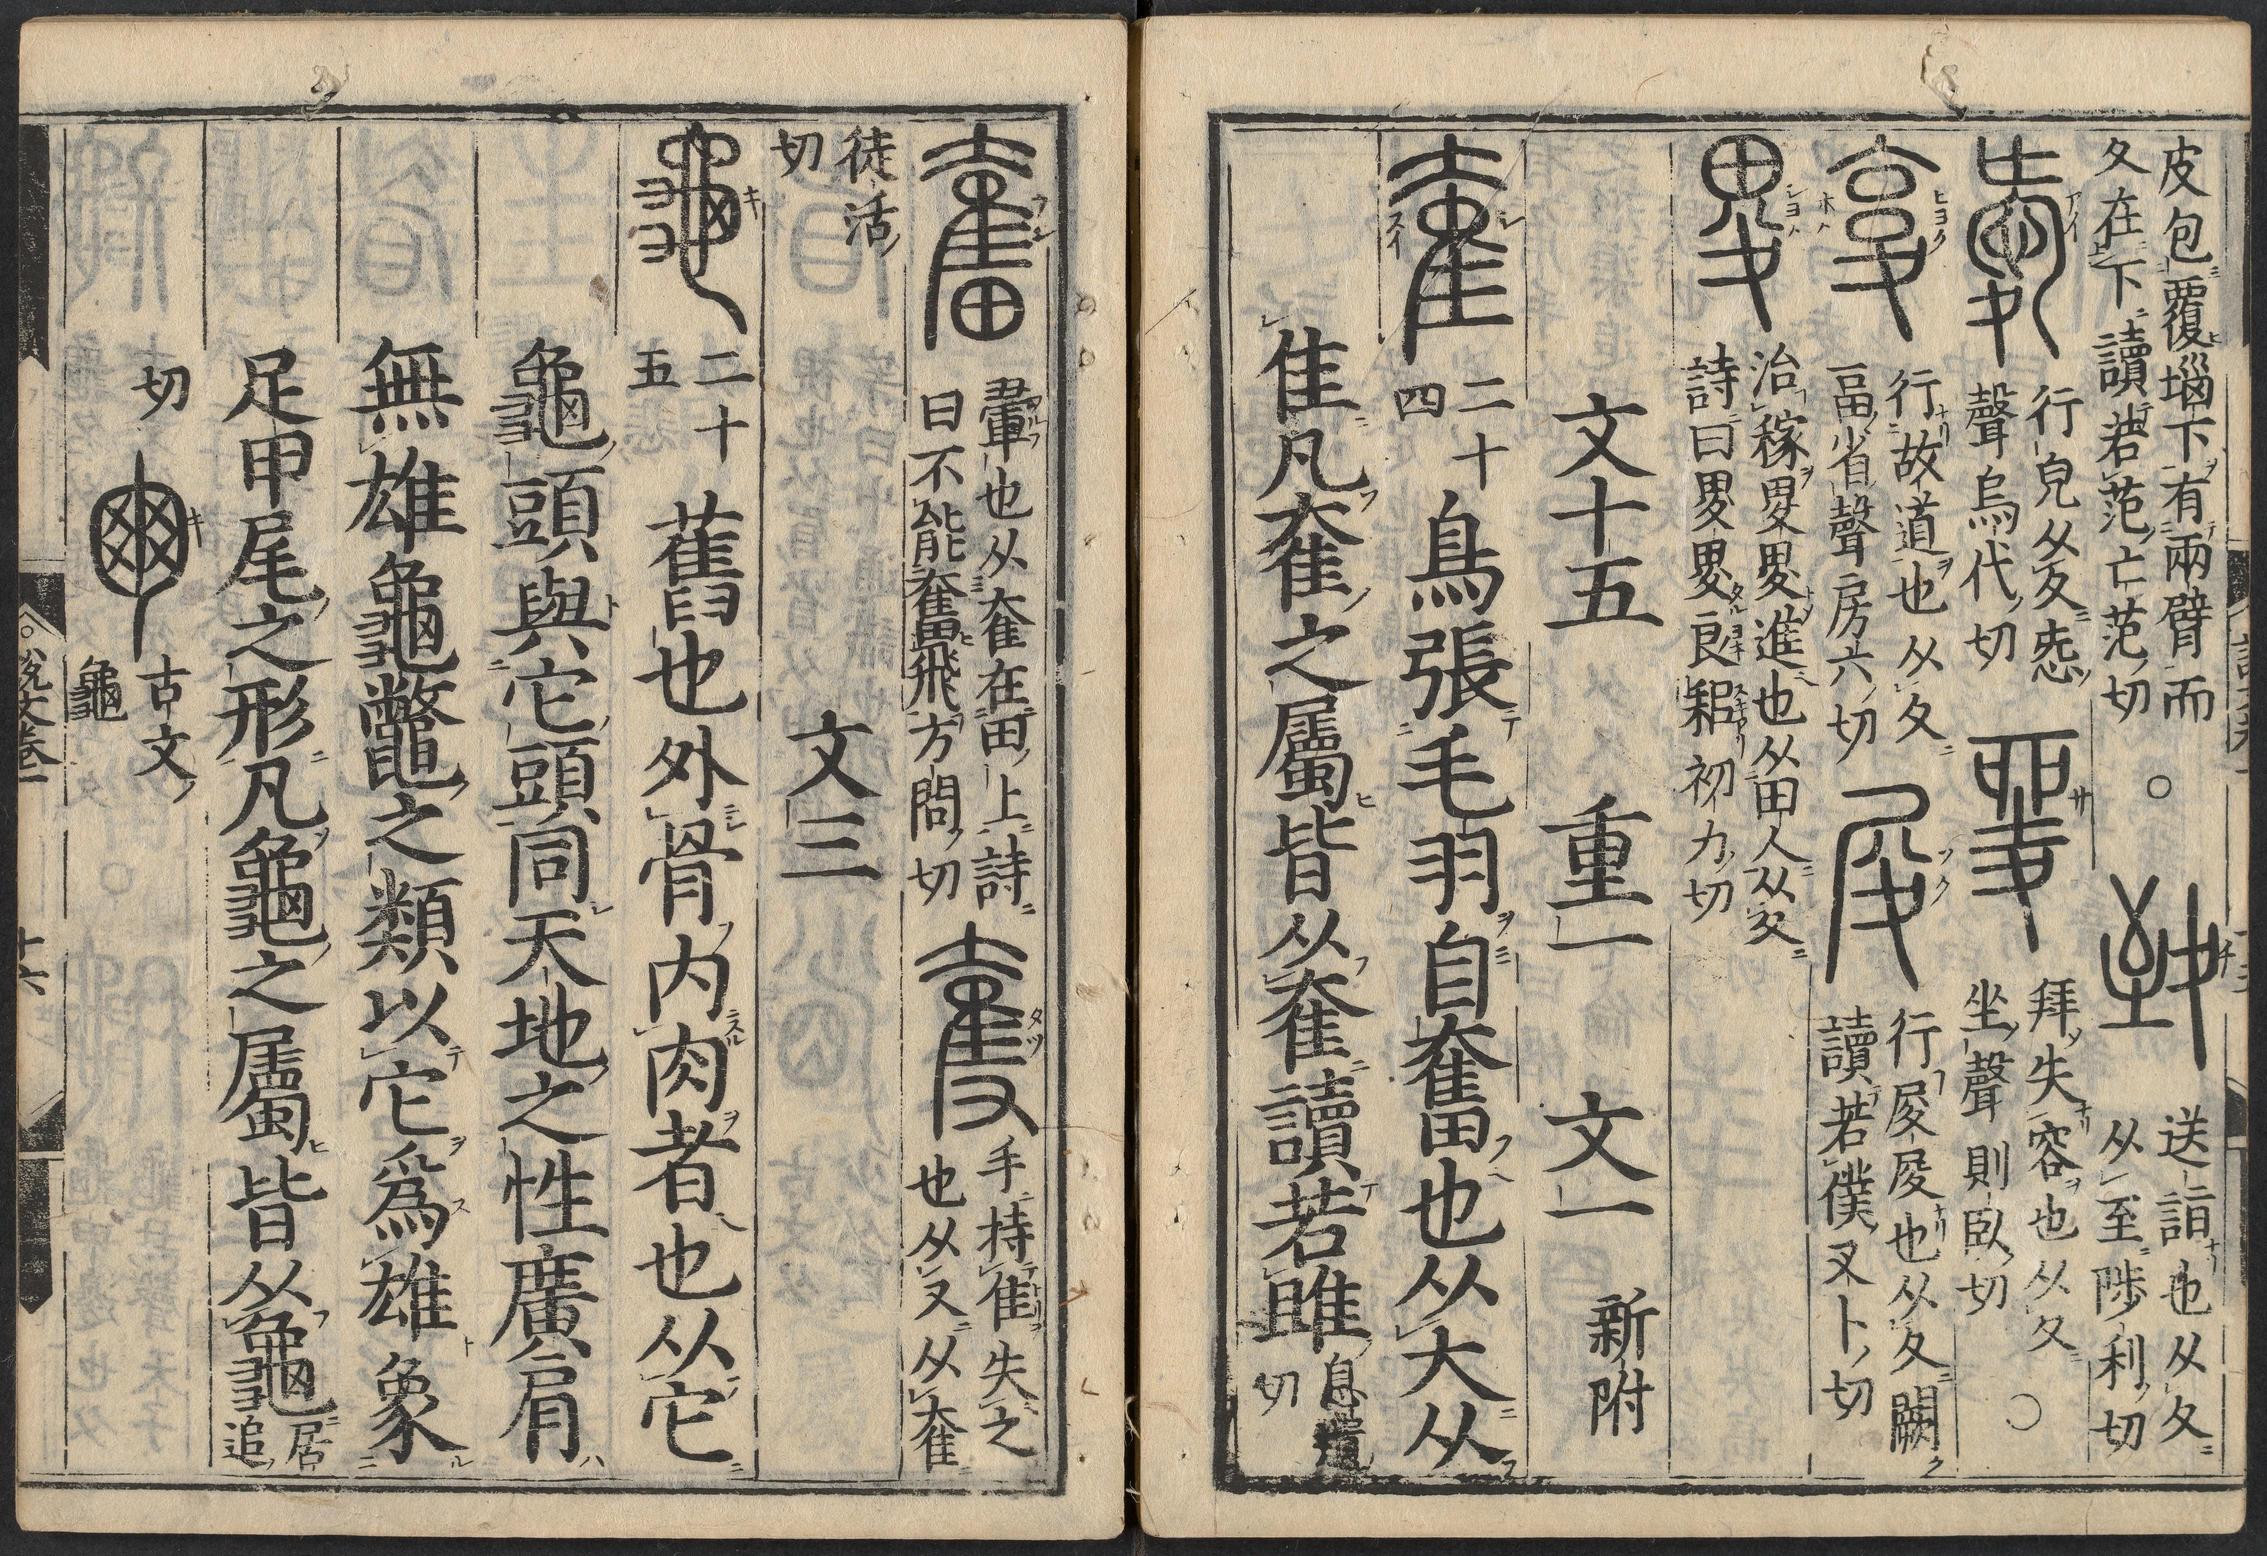 皮包覆瑙下有兩臂而
夊在下讀若范亡范切
○
送詣也从夊
从至陟利切
行皃从夊㤅
聲烏代切
拜失容也从夊
坐聲則臥切
○
行故道也从夊
畐省聲房六切
行㞋㞋也从夊闕
讀若僕又卜切
治稼畟畟進也从田人从夊
詩曰畟畟良耜初力切
文十五 重一 文一 新附
二十
四
鳥張毛羽自奮也从大从
隹凡奞之屬皆从奞讀若睢
息遺
切
翬也从奞在田上詩
曰不能奮飛方問切
手持隹失之
也从又从奞
徒活
切
文三
二十
五
舊也外骨内肉者也从它
龜頭與它頭同天地之性廣肩
無雄龜鼈之類以它爲雄象
足甲尾之形凡龜之屬皆从龜
居
追
切
古文
龜
說文卷一
十六